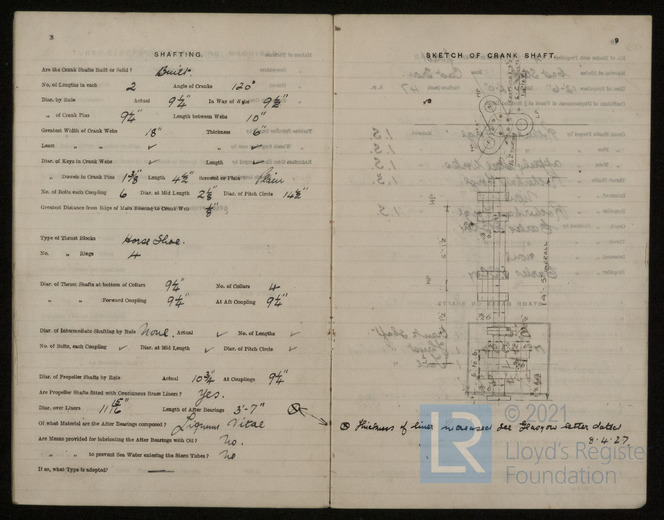 8
SHAFTING.
Are the Crank Shafts Built or Solid? Built.
No. of Lengths in each 2 Angle of Cranks 120°
Diar. by Rule Actual 9¼" In Way of Webs 9½"
„ of Crank Pins 9¼" Length between Webs 10"
Greatest Width of Crank Webs 18" Thickness 6"
Least „ „ ✓ „ ✓
Diar. of Keys in Crank Webs ✓ Length ✓
„ Dowels in Crank Pins 1⅜" Length 4½" Screwed or Plain Plain
No. of Bolts each Coupling 6 Diar. at Mid Length 2⅛" Diar. of Pitch Circle 14½"
Greatest Distance from Edge of Main Bearing to Crank Web
Type of Thrust Blocks Horse Shoe.
No. „ Rings 4
Diar. of Thrust Shafts at bottom of Collars 9¼" No. of Collars 4
„ „ Forward Coupling 9¼" At Aft Coupling 9¼"
Diar. of Intermediate Shafting by Rule None. Actual ✓ No. of Lengths ✓
No. of Bolts, each Coupling ✓ Diar. at Mid Length ✓ Diar. of Pitch Circle ✓
Diar. of Propeller Shafts by Rule Actual 10¾" At Couplings 9¼"
Are Propeller Shafts fitted with Continuous Brass Liners? Yes.
Diar. over Liners Length of After Bearings 3'-7"
Of what Material are the After Bearings composed? Lignum Vitae
Are Means provided for lubricating the After Bearings with Oil? No.
„ „ to prevent Sea Water entering the Stern Tubes? No
If so, what Type is adopted?
9
SKETCH OF CRANK SHAFT.
OVERALL
⊗ Thickness of liner increased see Glasgow letter dated
8.4.27
© 2021
LR
Lloyd's Register
Foundation